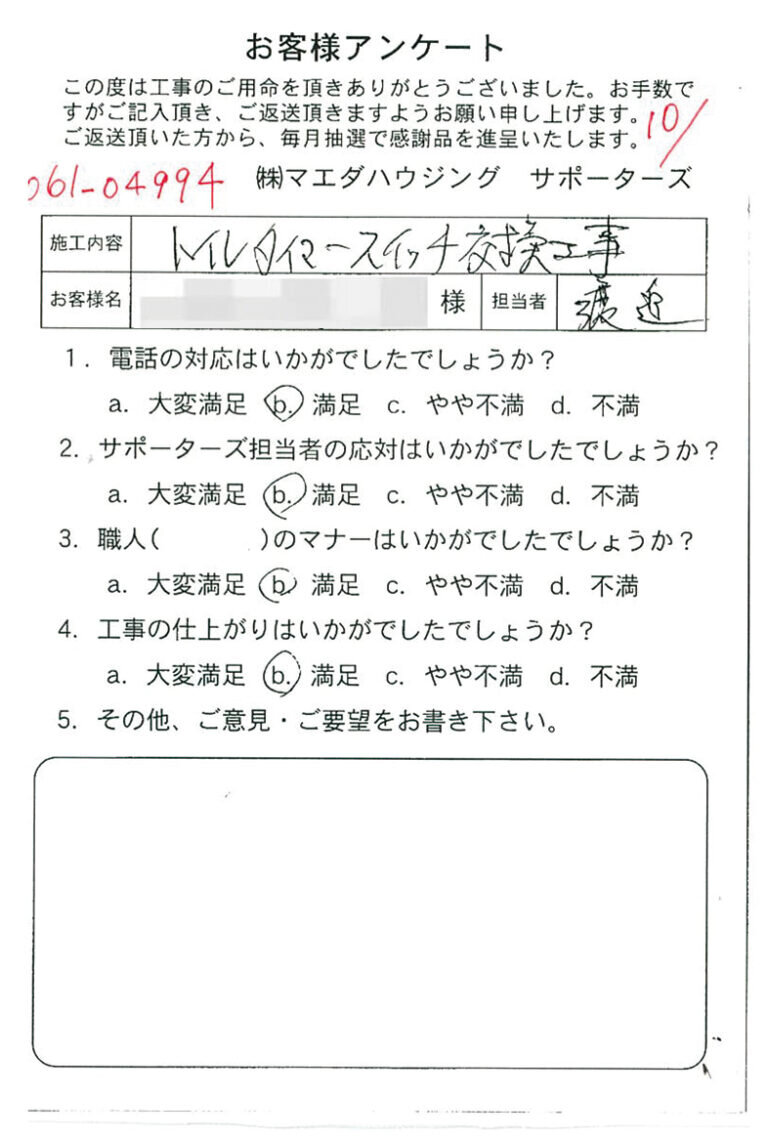 お客様アンケート
この度は工事のご用命を頂きありがとうございました。お手数で
すがご記入頂き、ご返送頂きますようお願い申し上げます。
ご返送頂いた方から、毎月抽選で感謝品を進呈いたします。
10/
061-04994
㈱マエダハウジング サポーターズ
施工内容 トイレタイマースイッチ交換工事
お客様名 様 担当者 渡辺
1. 電話の対応はいかがでしたでしょうか?
a. 大変満足 b. 満足 c. やや不満 d. 不満
2. サポーターズ担当者の応対はいかがでしたでしょうか?
a. 大変満足 b. 満足 c. やや不満 d. 不満
3. 職人( )のマナーはいかがでしたでしょうか?
a. 大変満足 b. 満足 c. やや不満 d. 不満
4. 工事の仕上がりはいかがでしたでしょうか?
a. 大変満足 b. 満足 c. やや不満 d. 不満
5. その他、ご意見・ご要望をお書き下さい。